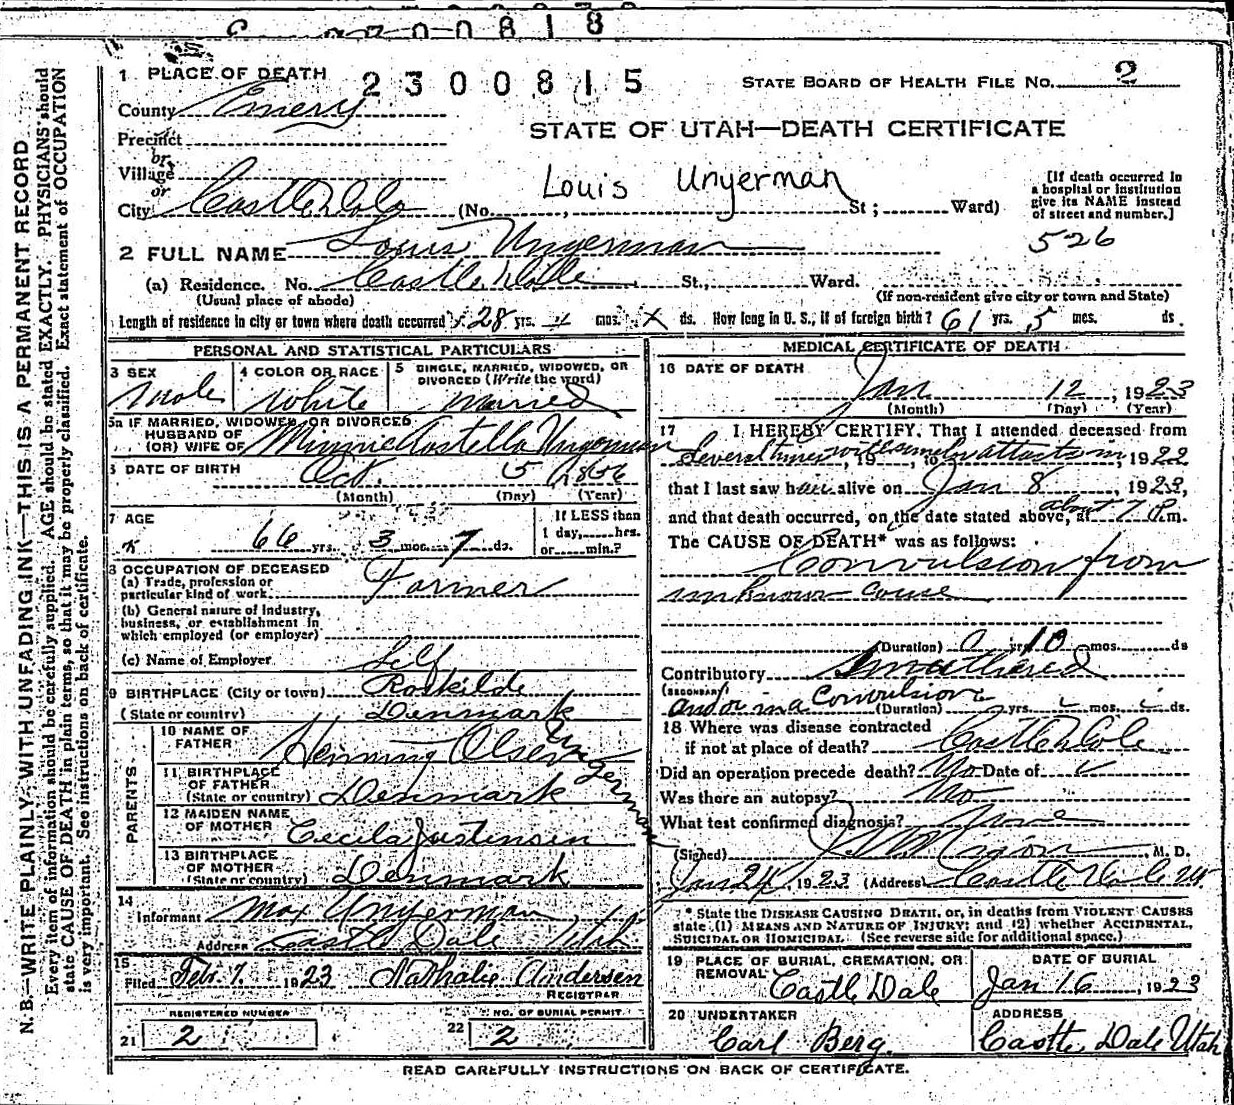 2300818
1 PLACE OF DEATH 2300815 STATE BOARD OF HEALTH FILE NO. 2
County Emery
Precinct
STATE OF UTAH—DEATH CERTIFICATE
or
Village
or
Louis Ungerman
City Castle Dale (No. , St ; Ward)
[If death occurred in a hospital or institution give its NAME instead of street and number.]
526
2 FULL NAME Louis Ungerman
(a) Residence. No. Castle Dale St., Ward.
(Usual place of abode) (If non-resident give city or town and State)
Length of residence in city or town where death occurred 28 yrs. mos. ds. How long in U. S., if of foreign birth? 61 yrs. 5 mos. ds.
PERSONAL AND STATISTICAL PARTICULARS
3 SEX Male
4 COLOR OR RACE White
5 SINGLE, MARRIED, WIDOWED, OR DIVORCED (Write the word) married
5a IF MARRIED, WIDOWED, OR DIVORCED
HUSBAND OF
(OR) WIFE OF Minnie Costella Ungerman
6 DATE OF BIRTH Oct. 5 1856
(Month) (Day) (Year)
7 AGE 66 yrs. 3 mos. 7 ds.
If LESS than 1 day, hrs. or min.?
8 OCCUPATION OF DECEASED
(a) Trade, profession or particular kind of work Farmer
(b) General nature of industry, business, or establishment in which employed (or employer)
(c) Name of Employer Self
9 BIRTHPLACE (City or town) Roskilde
(State or country) Denmark
PARENTS
10 NAME OF FATHER Henning Olsen Ungerman
11 BIRTHPLACE OF FATHER
(State or country) Denmark
12 MAIDEN NAME OF MOTHER Cecila Justensen
13 BIRTHPLACE OF MOTHER
(State or country) Denmark
14
Informant Max Ungerman
Address Castle Dale Utah
15
Filed Feb. 7. 1923 Nathalie Andersen
REGISTRAR
REGISTERED NUMBER
21 2
NO. OF BURIAL PERMIT
22 2
MEDICAL CERTIFICATE OF DEATH
16 DATE OF DEATH
Jan 12, 1923
(Month) (Day) (Year)
17 I HEREBY CERTIFY, That I attended deceased from
Several times with similar attacts in, 19 , to , 1922
that I last saw h alive on Jan 8, 1923,
and that death occurred, on the date stated above, at about 7 P.m.
The CAUSE OF DEATH* was as follows:
Convulsion from
unknown couse
(Duration) 0 yrs 10 mos. ds
Contributory Smothered
(SECONDARY) and/or in a Convulsion
(Duration) yrs. mos. ds.
18 Where was disease contracted
if not at place of death? Castle Dale
Did an operation precede death? No Date of
Was there an autopsy? No
What test confirmed diagnosis? None
(Signed) , M. D.
Jan 24, 1923 (Address) Castle Dale Ut.
* State the DISEASE CAUSING DEATH, or, in deaths from VIOLENT CAUSES
state (1) MEANS AND NATURE OF INJURY; and (2) whether ACCIDENTAL,
SUICIDAL or HOMICIDAL (See reverse side for additional space.)
19 PLACE OF BURIAL, CREMATION, OR REMOVAL Castle Dale
DATE OF BURIAL Jan 16, 1923
20 UNDERTAKER Carl Berg.
ADDRESS Castle Dale Utah
READ CAREFULLY INSTRUCTIONS ON BACK OF CERTIFICATE.
N.B.—WRITE PLAINLY—WITH UNFADING INK—THIS IS A PERMANENT RECORD
Every item of information should be carefully supplied. AGE should be stated EXACTLY. PHYSICIANS should
state CAUSE OF DEATH in plain terms, so that it may be properly classified. Exact statement of OCCUPATION
is very important. See instructions on back of certificate.